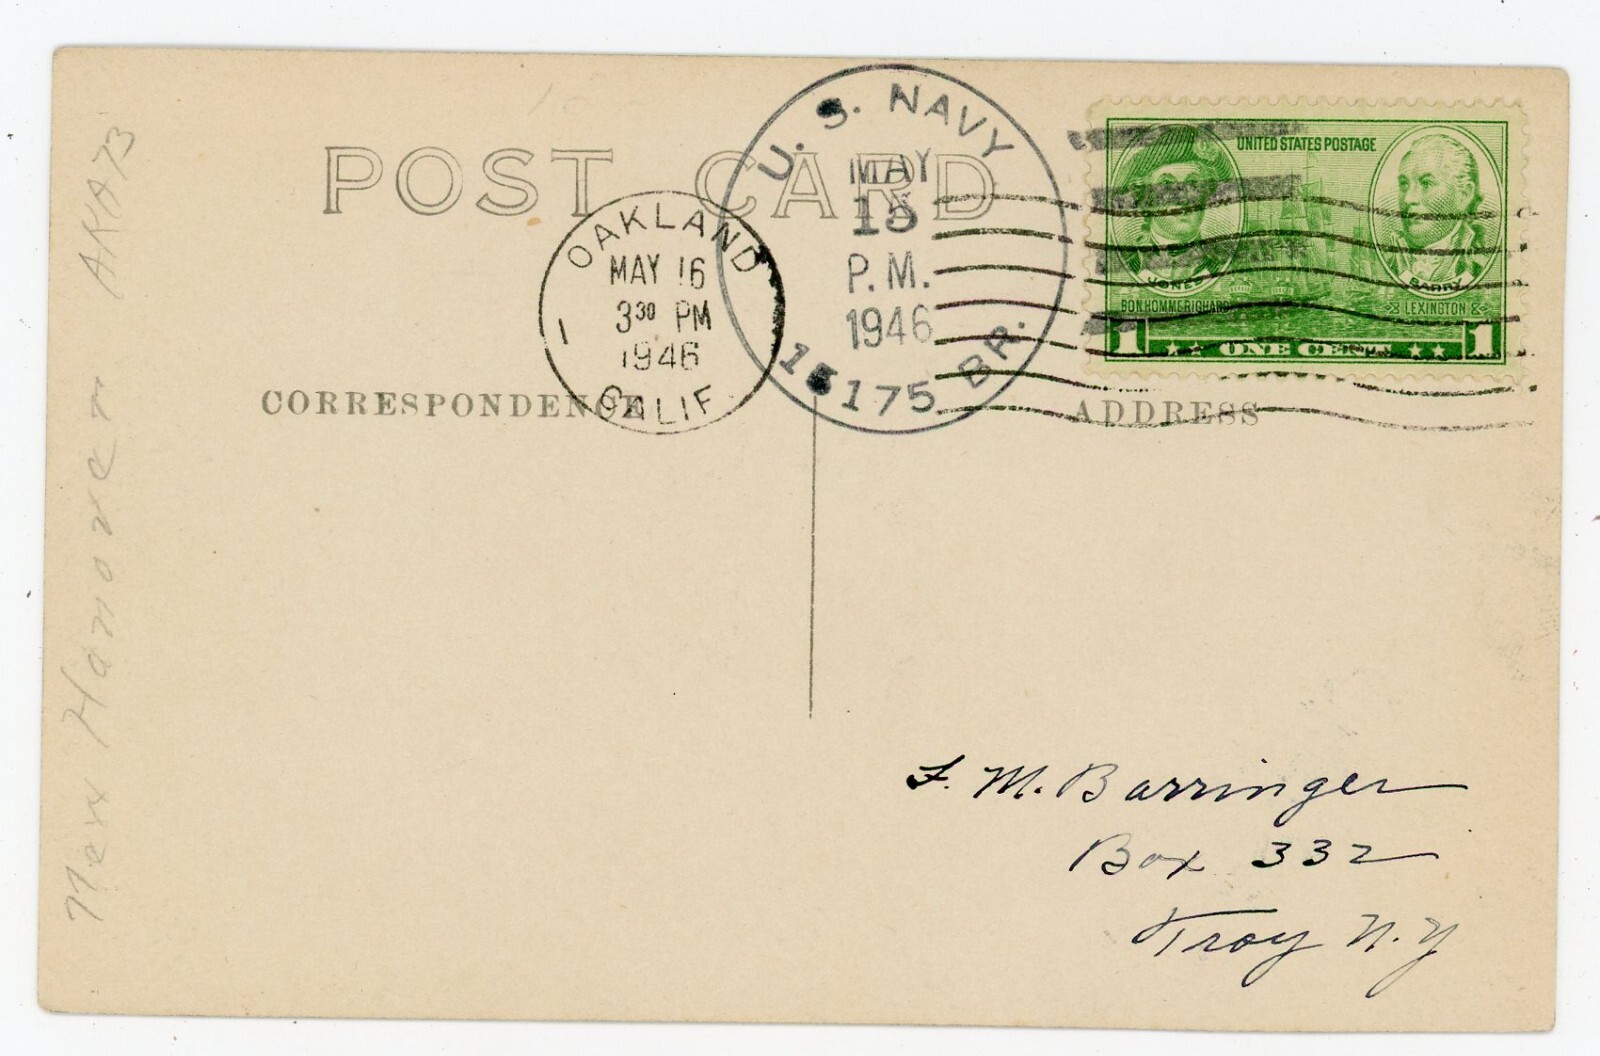 POST CARD
U. S. NAVY
MAY
15
P.M.
1946
15175 BR.
OAKLAND
MAY 16
3 30 PM
1946
CALIF
1
UNITED STATES POSTAGE
JONES
BARRY
BON HOMME RICHARD
LEXINGTON
1 ONE CENT 1
CORRESPONDENCE
ADDRESS
New Hanover AKA 73
F. M. Barringer
Box 332
Troy N.Y